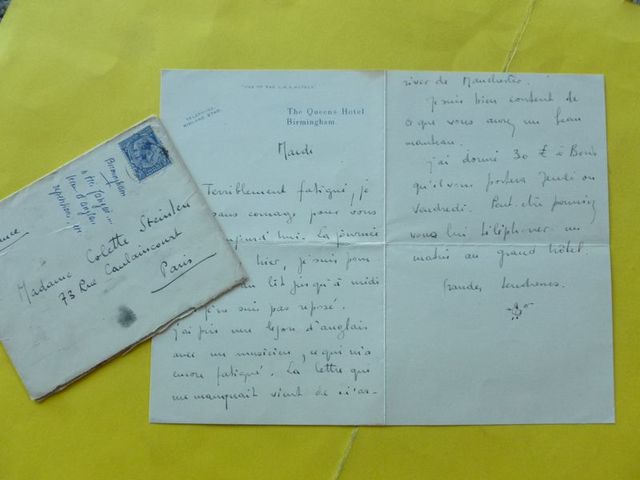 "ONE OF THE L.M.S. HOTELS."
TELEPHONE,
MIDLAND 2740.
The Queens Hotel
Birmingham.
Mardi
Terriblement fatigué, je
sans courage pour vous
aujourd'hui. La journée
hier, je suis
au lit jusqu'à midi
suis pas reposé.
j'ai pris une leçon d'anglais
avec un musicien, ce qui m'a
encore fatigué. La lettre qui
me manquait vient de m'ar-
river de Manchester.
Je suis bien content de
ce que vous avez un beau
manteau.
J'ai donné 30 £ à Boris
qu'il vous portera Jeudi ou
Vendredi. Peut-être pourriez
vous lui téléphoner un
matin au grand hôtel
Grandes tendresses.
Birmingham
Madame Colette Steinlen
73 Rue Caulaincourt
Paris